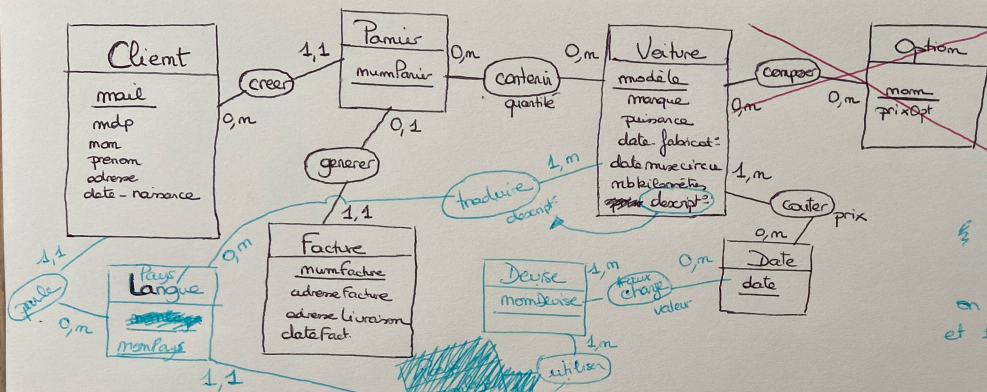 Client
mail
mdp
nom
prenom
adresse
date-naissance
0,n
creer
1,1
Panier
numPanier
0,n
contenir
quantité
0,n
Voiture
modèle
marque
puissance
date fabricat°
date misecircu
nbkilomètres
descript°
0,n
composer
0,n
Option
nom
prixOpt
0,1
generer
1,1
Facture
numfacture
adresse facture
adresse livraison
dateFact.
1,n
traduire
descript°
0,n
1,n
couter
prix
0,n
Date
date
1,1
parle
0,n
Pays
Langue
nomPays
1,1
Devise
nomDevise
1,n
taux
change
valeur
0,n
1,n
utiliser
on
et 1